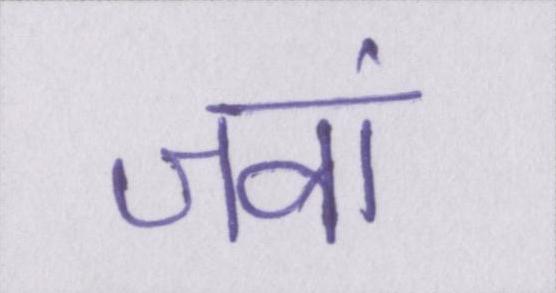 जवां